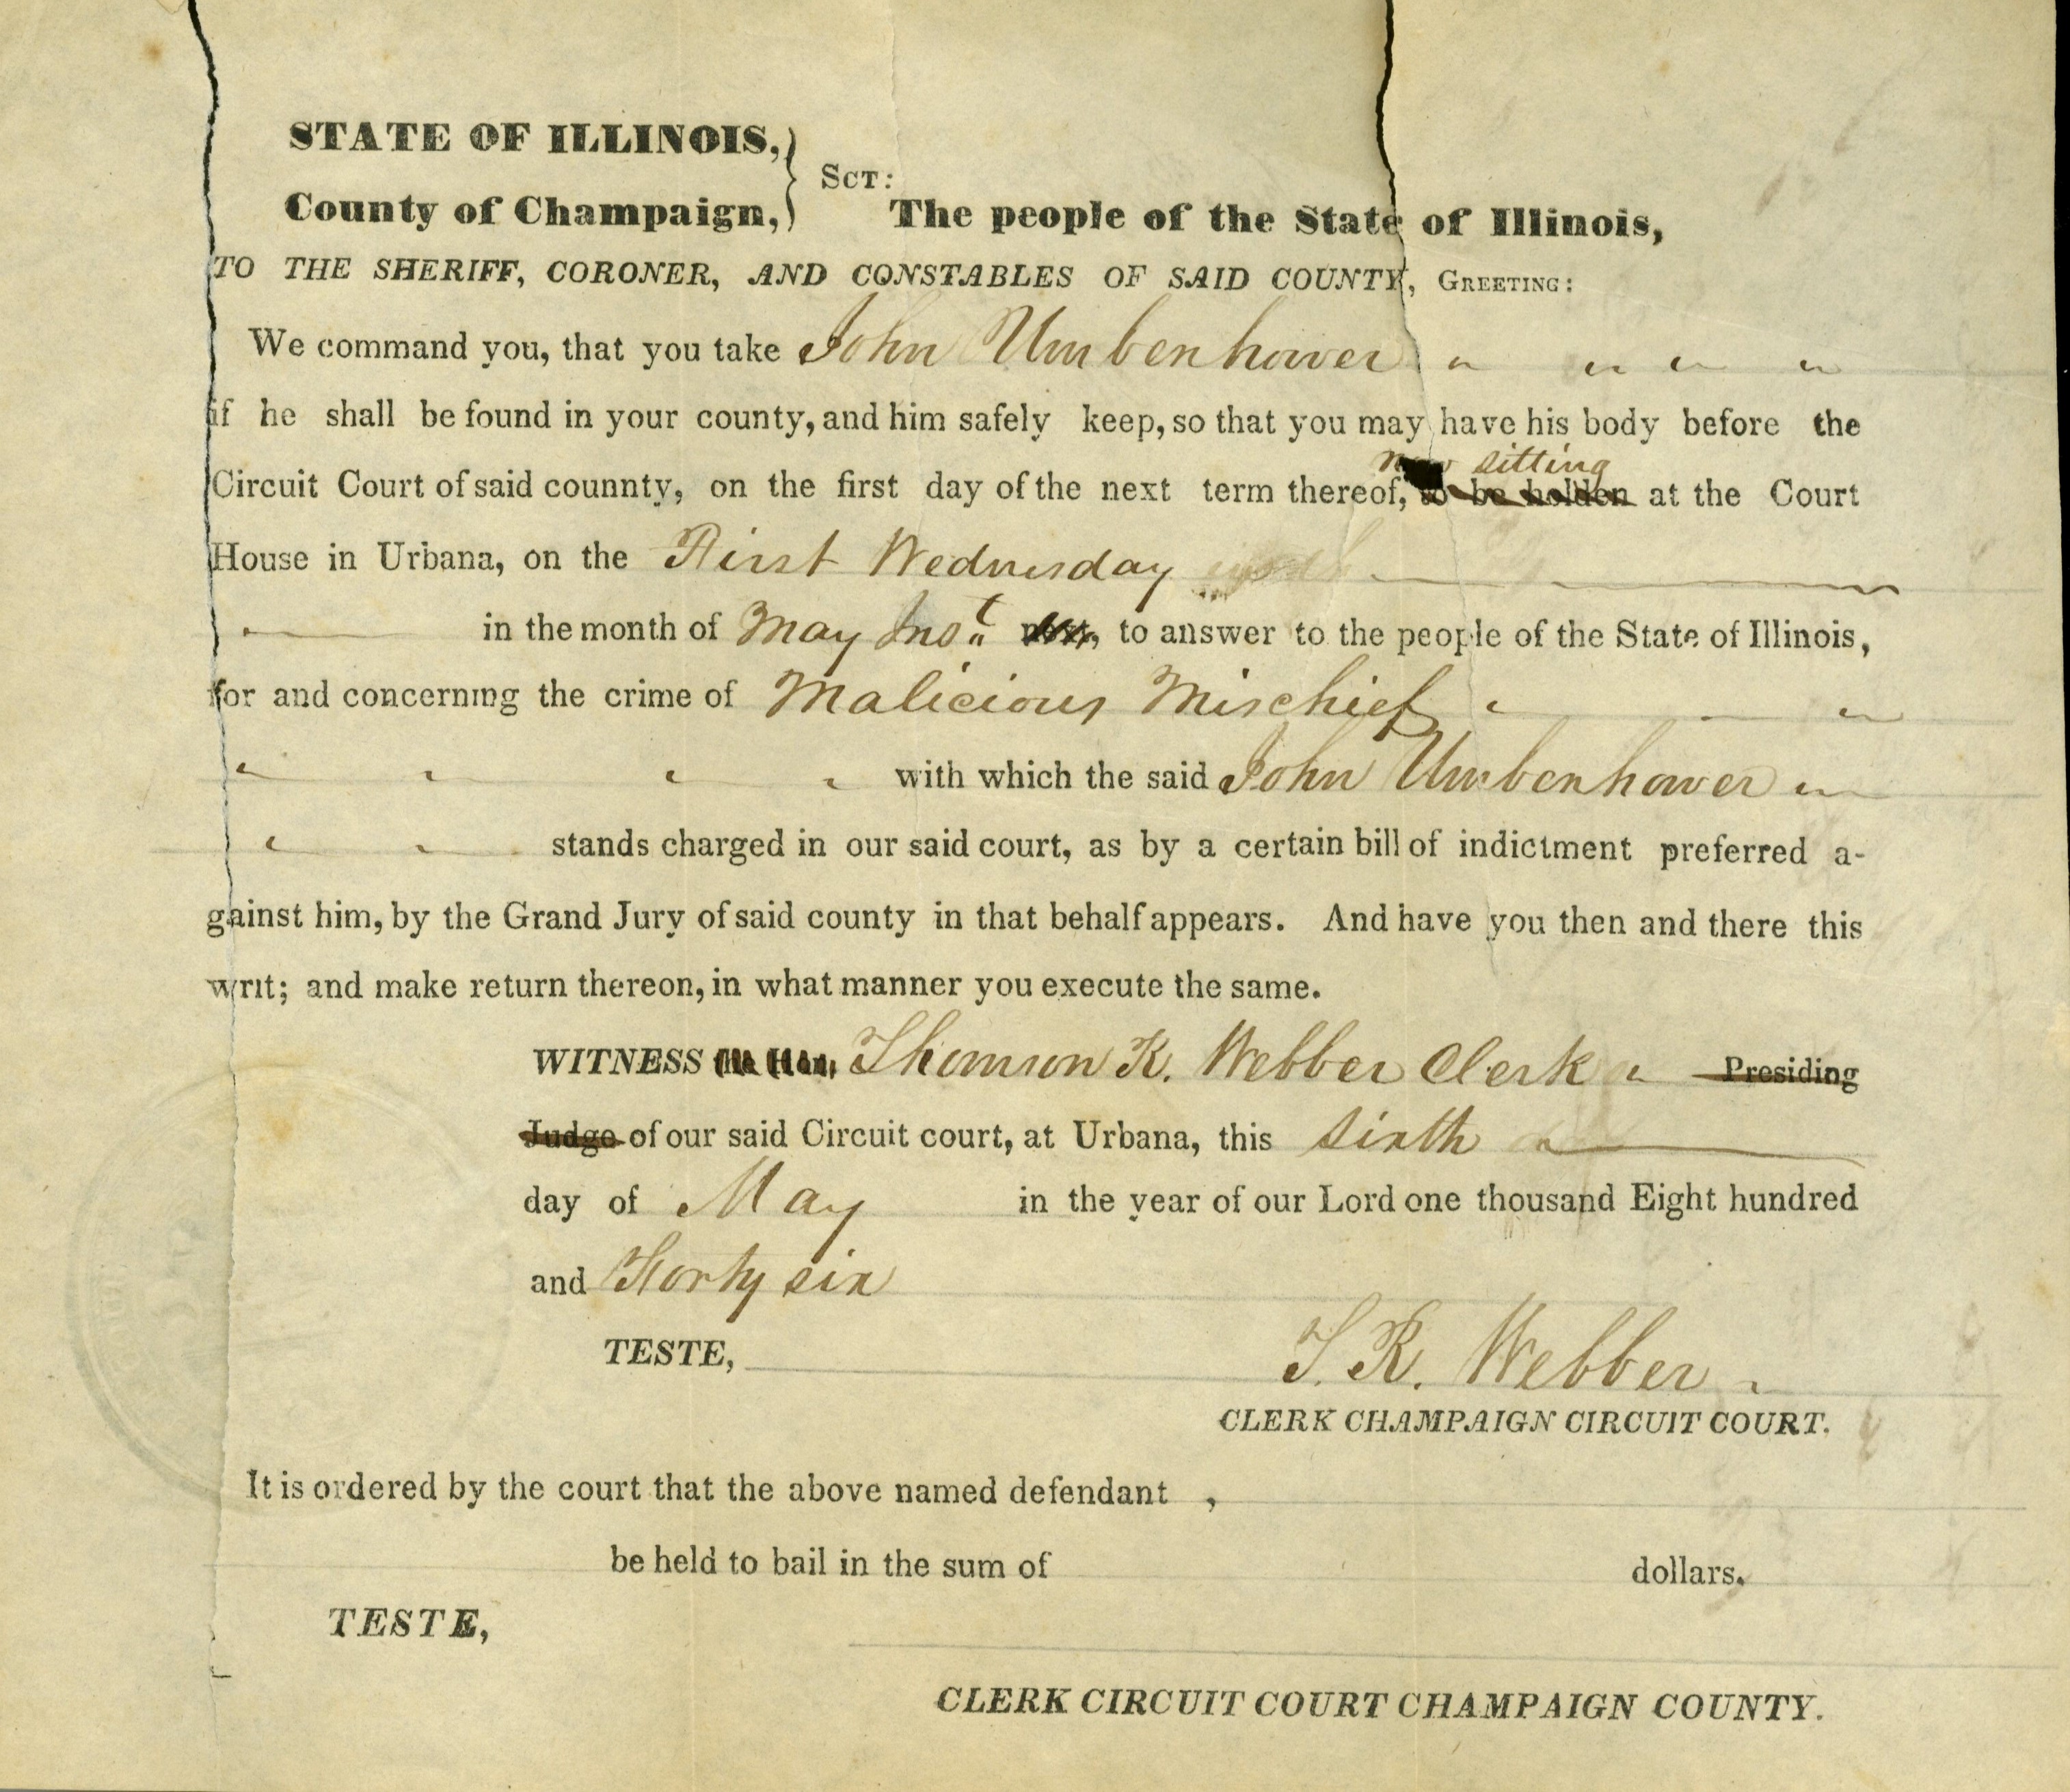 STATE OF ILLINOIS,
County of Champaign,
SCT:
The people of the State of Illinois,
TO THE SHERIFF, CORONER, AND CONSTABLES OF SAID COUNTY, GREETING:
We command you, that you take John Umbenhower
if he shall be found in your county, and him safely keep, so that you may have his body before the
now sitting
Circuit Court of said counnty, on the first day of the next term thereof, to be holden at the Court
House in Urbana, on the First Wednesday
in the month of May Inst next, to answer to the people of the State of Illinois,
for and concerning the crime of Malicious Mischief
with which the said John Umbenhower
stands charged in our said court, as by a certain bill of indictment preferred a-
gainst him, by the Grand Jury of said county in that behalf appears. And have you then and there this
writ; and make return thereon, in what manner you execute the same.
WITNESS the Hon. Thomson R. Webber Clerk Presiding
Judge of our said Circuit court, at Urbana, this sixth
day of May in the year of our Lord one thousand Eight hundred
and Forty six
TESTE, T. R. Webber
CLERK CHAMPAIGN CIRCUIT COURT.
It is ordered by the court that the above named defendant ,
be held to bail in the sum of dollars.
TESTE,
CLERK CIRCUIT COURT CHAMPAIGN COUNTY.